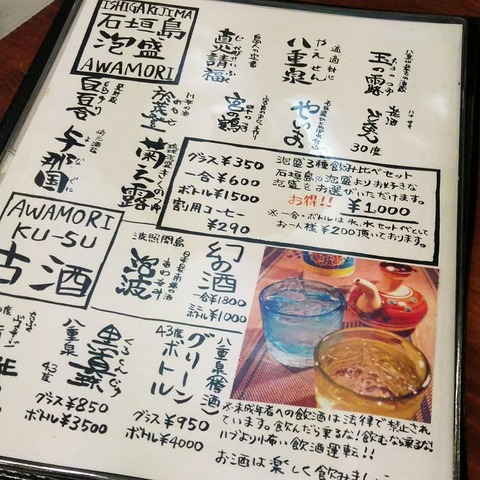 ISHIGAKIJIMA
石垣島
泡盛
AWAMORI
玉の露
八重泉
やえせん
直火請福
30度
やいま
宮の鶴
於茂登
白百合
菊之露
与那国
泡盛3種飲み比べセット
石垣島の泡盛よりお好きな
泡盛をお選びいただけます。
お得!! ¥1,000
※一合・ボトルは氷、水セット代として
お一人様¥200頂いております。
グラス¥350
一合¥600
ボトル¥1500
割用コーヒー
¥290
AWAMORI
KU-SU
古酒
幻の酒
一合¥1800
ミニボトル¥1000
波照間島
泡波
八重泉樽酒
グリーン
ボトル
43度
グラス¥950
ボトル¥4000
黒真珠
八重泉
43度
グラス¥850
ボトル¥3500
※未成年者への飲酒は法律で禁止され
ています。飲んだら乗るな!飲むなら乗るな!
ハブより怖い飲酒運転!!
お酒は楽しく飲みましょ